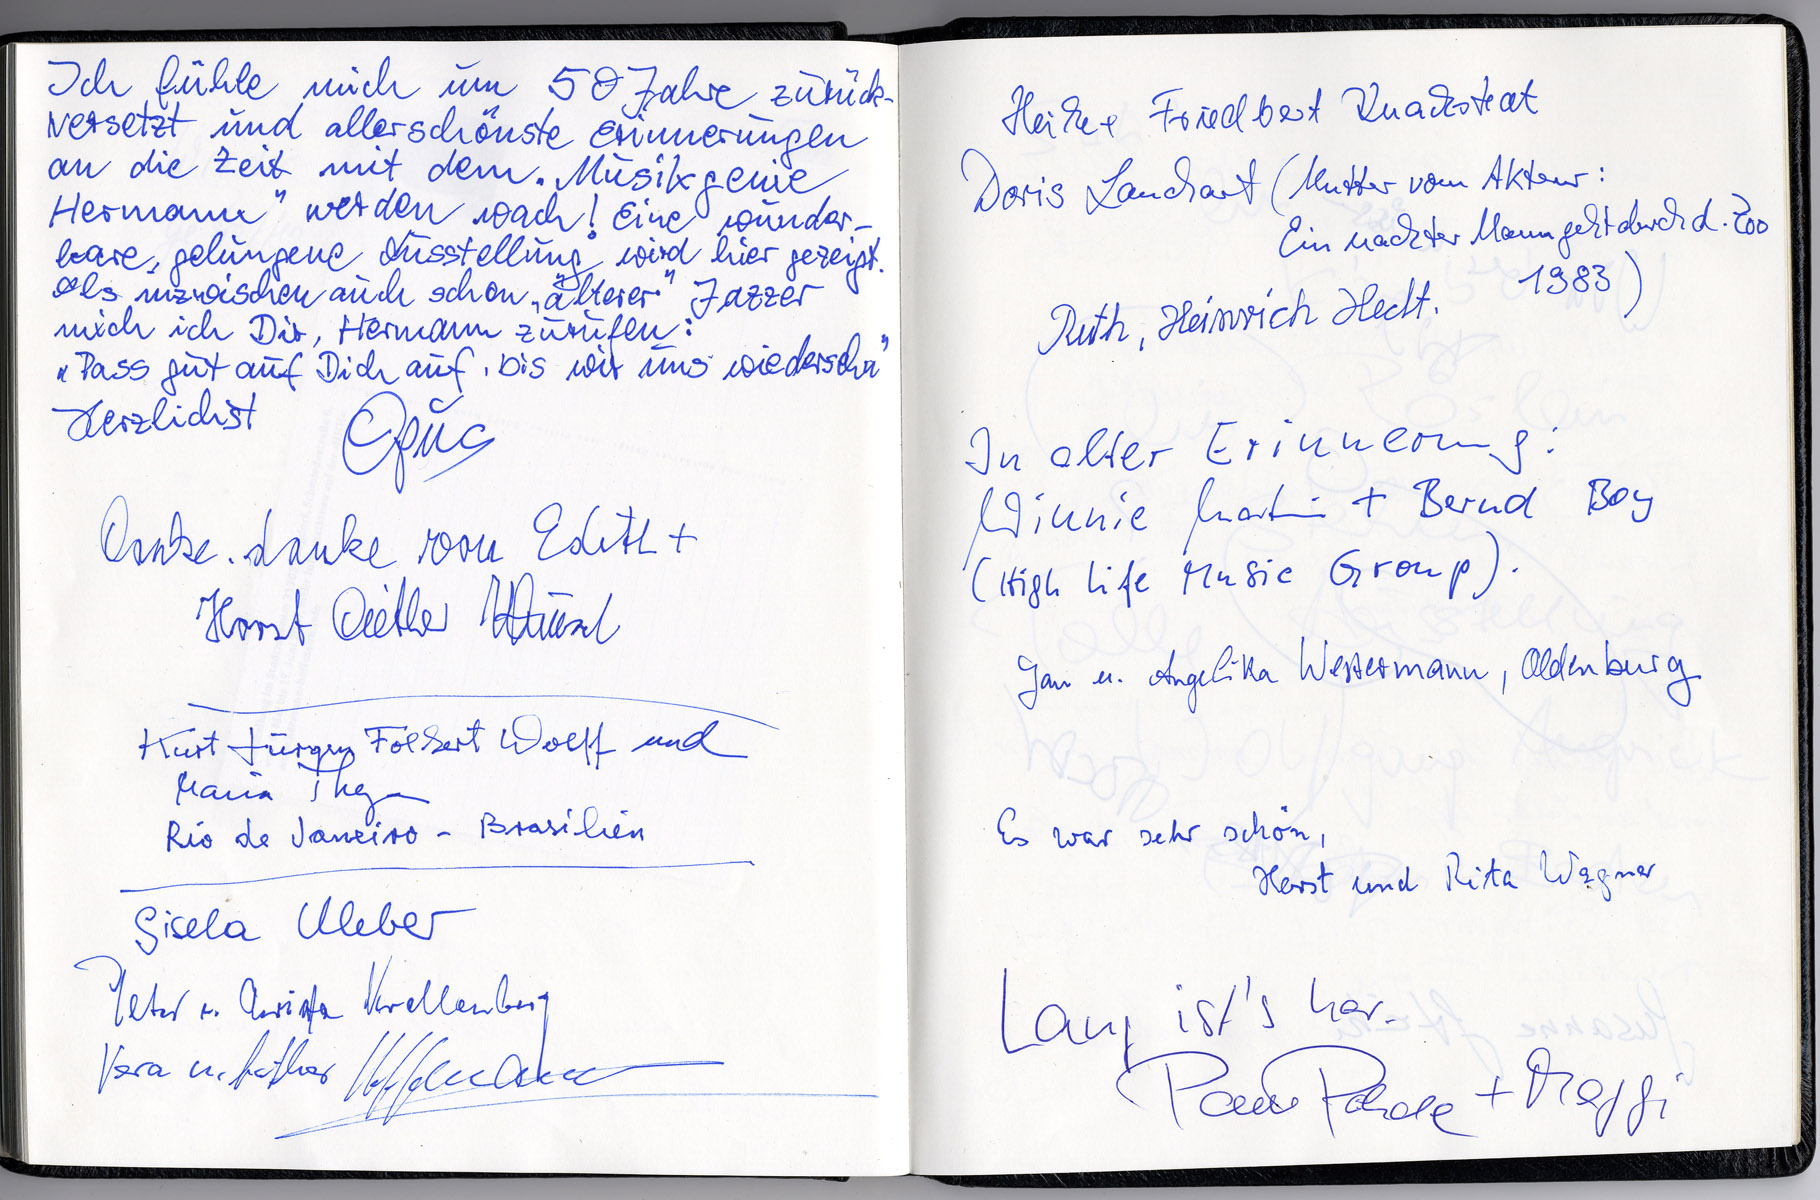 Ich fühle mich um 50 Jahre zurück-
versetzt und allerschönste Erinnerungen
an die Zeit mit dem „Musikgenie
Hermann" werden wach! Eine wunder-
bare, gelungene Ausstellung wird hier gezeigt.
Als inzwischen auch schon „älterer" Jazzer
möch ich Dir, Hermann zurufen:
„Pass gut auf Dich auf, bis wir uns wiedersehn"
Herzlichst
Danke, danke von Edith +
Horst Diether
Kurt Jürgen Folkert Wolff und
Maria
Rio de Janeiro - Brasilien
Gisela Weber
Peter u. Christa Krellenberg
Vera u. Lothar
Heike + Friedbert Knackstedt
Doris (Mutter vom Akteur:
Ein nackter Mann geht durch d. Zoo
1983)
Ruth, Heinrich Hecht.
In alter Erinnerung:
Winnie Martin + Bernd Boy
(High Life Music Group).
Jan u. Angelika Westermann, Oldenburg
Es war sehr schön,
Horst und Rita Wagner
Lang ist's her.
+ Maggi